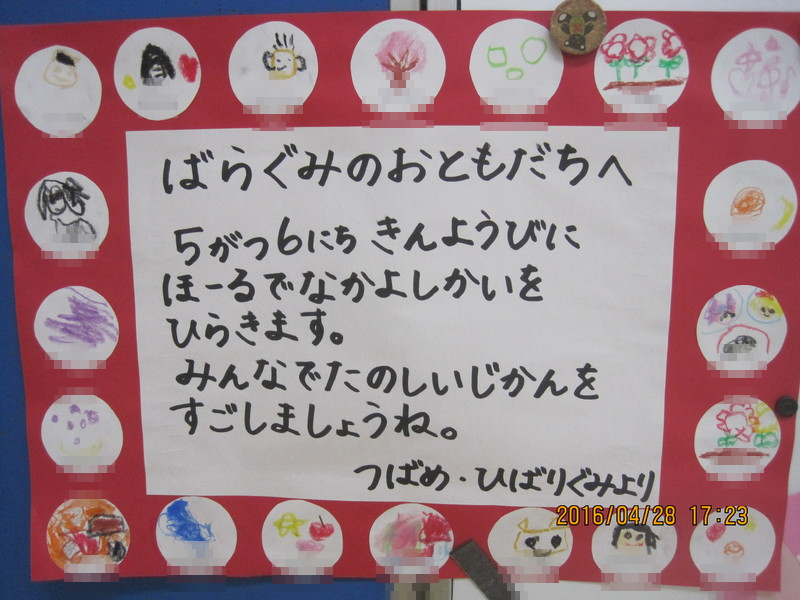 ばらぐみのおともだちへ
5がつ6にち きんようびに
ほーるでなかよしかいを
ひらきます。
みんなでたのしいじかんを
すごしましょうね。
つばめ・ひばりぐみより
2016/04/28 17:23